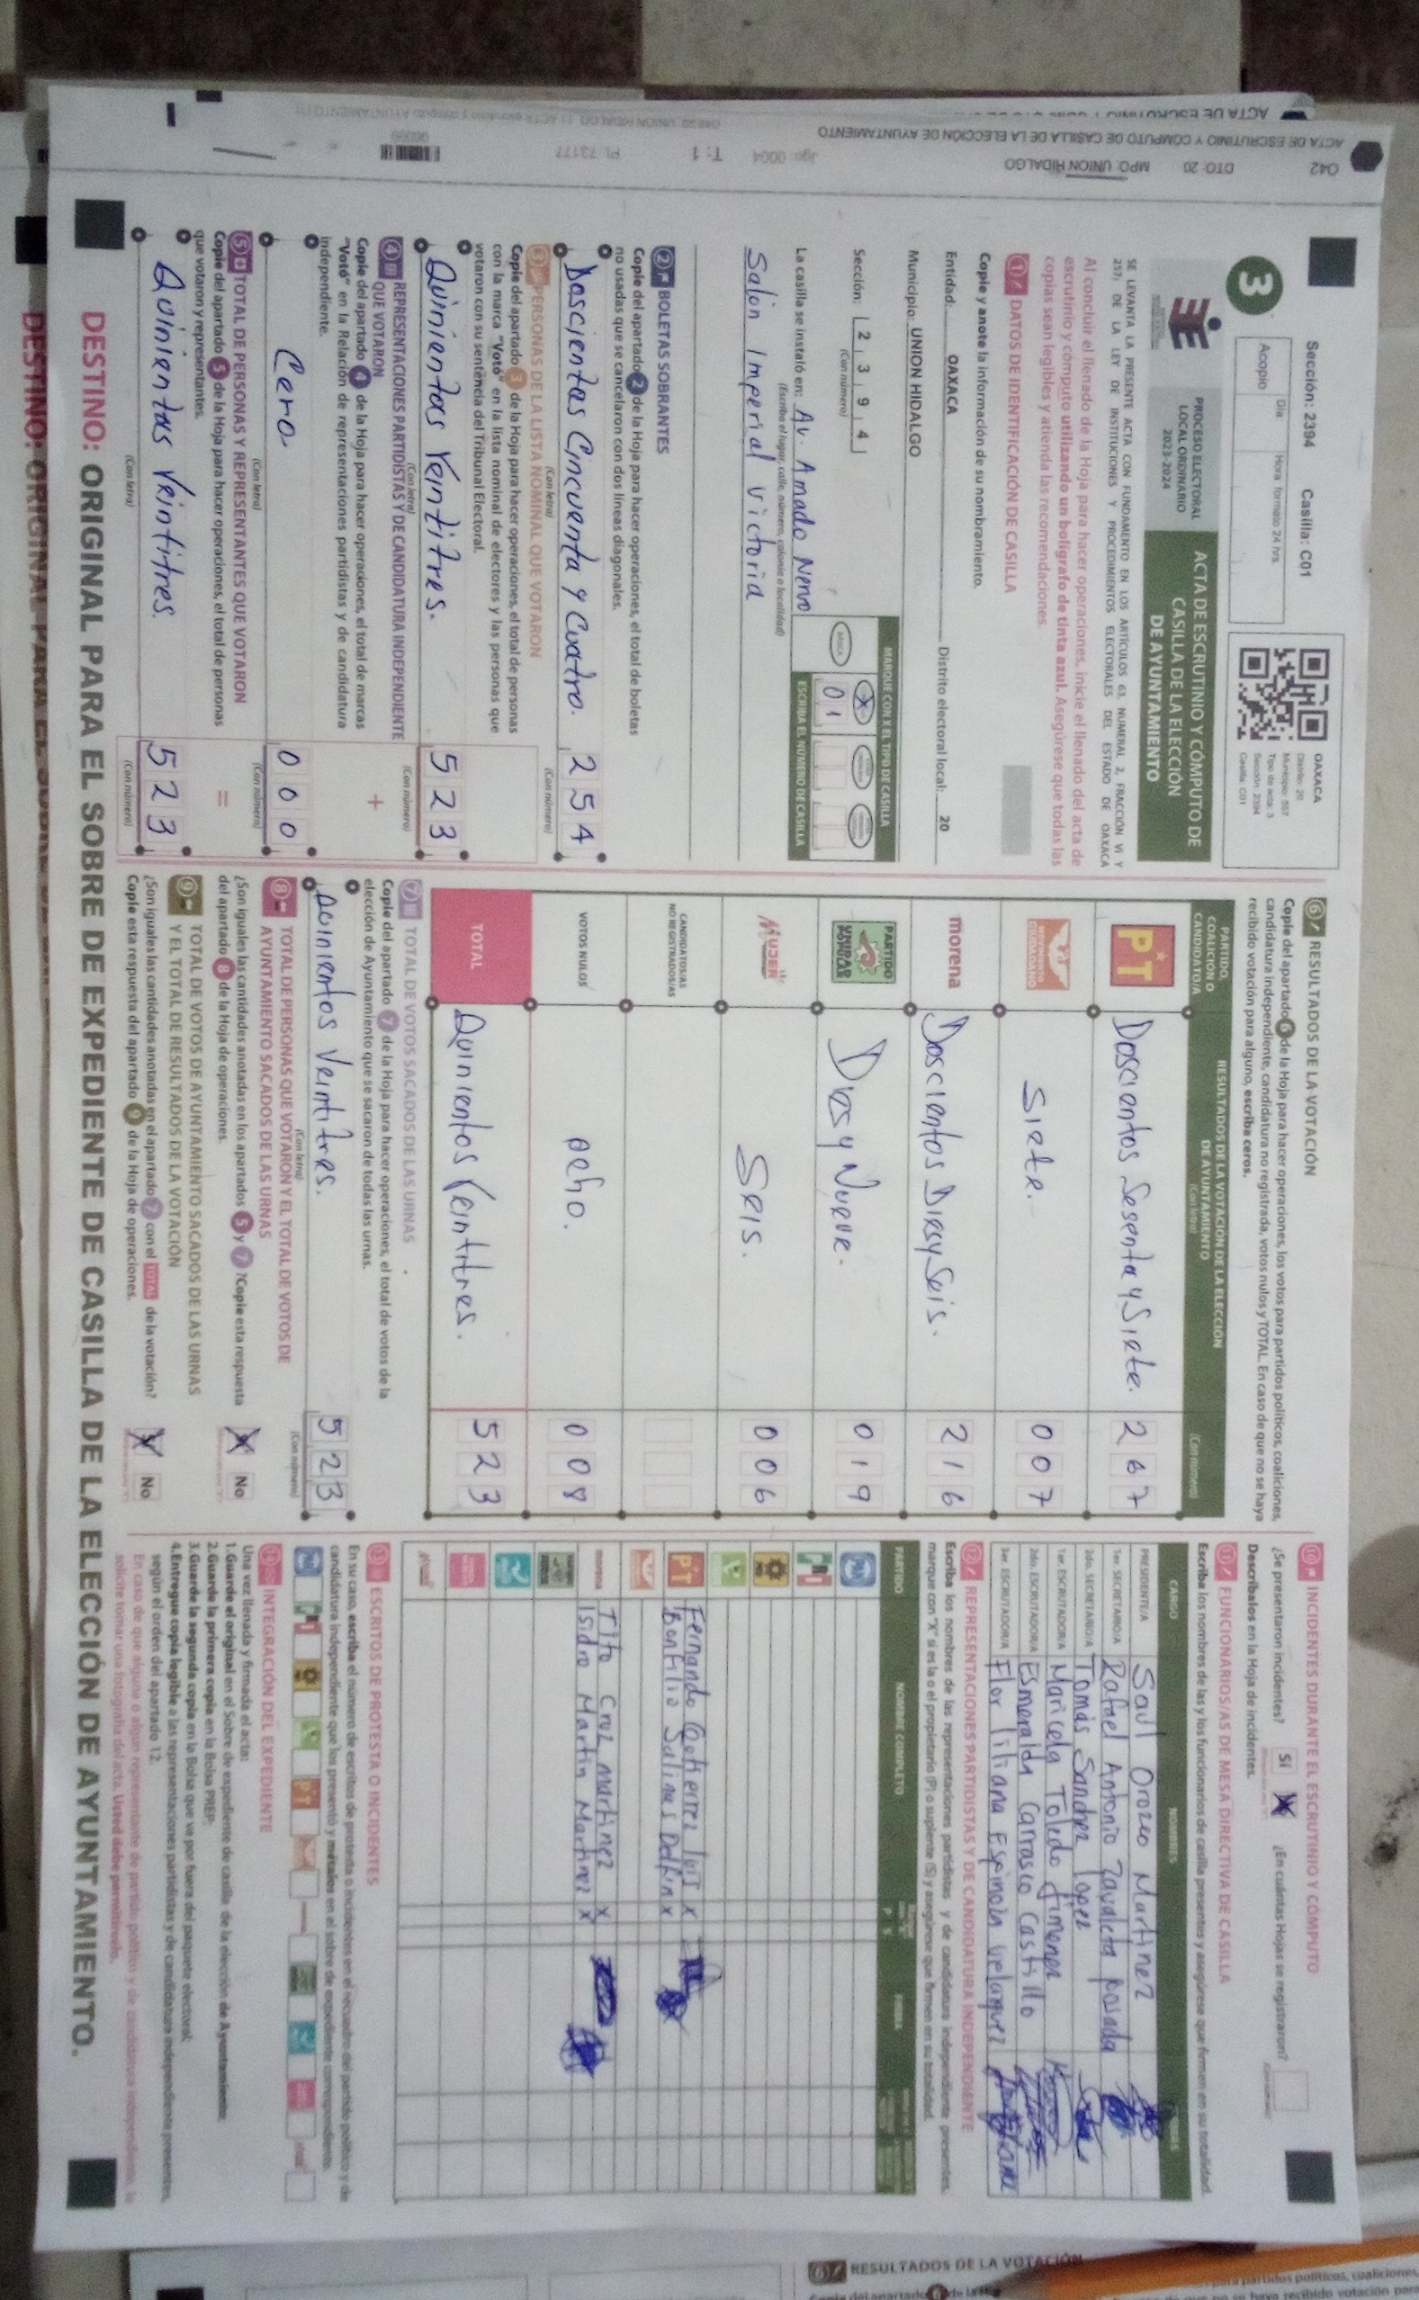 Sección: 2394 Casilla: C01
3
Acopio
Día
Hora formato 24 hrs.
OAXACA
Distrito: 20
Municipio: 557
Tipo de acta: 3
Sección: 2394
Casilla: C01
PROCESO ELECTORAL
LOCAL ORDINARIO
2023-2024
ACTA DE ESCRUTINIO Y CÓMPUTO DE
CASILLA DE LA ELECCIÓN
DE AYUNTAMIENTO
SE LEVANTA LA PRESENTE ACTA CON FUNDAMENTO EN LOS ARTÍCULOS 63, NUMERAL 2, FRACCIÓN VI Y
237; DE LA LEY DE INSTITUCIONES Y PROCEDIMIENTOS ELECTORALES DEL ESTADO DE OAXACA
Al concluir el llenado de la Hoja para hacer operaciones, inicie el llenado del acta de
escrutinio y cómputo utilizando un bolígrafo de tinta azul. Asegúrese que todas las
copias sean legibles y atienda las recomendaciones.
1 DATOS DE IDENTIFICACIÓN DE CASILLA
Copie y anote la información de su nombramiento.
Entidad: OAXACA Distrito electoral local: 20
Municipio: UNION HIDALGO
Sección: 2 3 9 4
(Con número)
MARQUE CON X EL TIPO DE CASILLA
BÁSICA X
0 1
ESCRIBA EL NÚMERO DE CASILLA
La casilla se instaló en: Av. Amado Nervo
(Escriba el lugar, calle, número, colonia o localidad)
Salón Imperial Victoria
2 BOLETAS SOBRANTES
Copie del apartado 2 de la Hoja para hacer operaciones, el total de boletas
no usadas que se cancelaron con dos líneas diagonales.
Doscientas Cincuenta y Cuatro. 2 5 4
(Con letra) (Con número)
3 PERSONAS DE LA LISTA NOMINAL QUE VOTARON
Copie del apartado 3 de la Hoja para hacer operaciones, el total de personas
con la marca "Votó" en la lista nominal de electores y las personas que
votaron con su sentencia del Tribunal Electoral.
Quinientas Veintitres. 5 2 3
(Con letra) (Con número)
4 REPRESENTACIONES PARTIDISTAS Y DE CANDIDATURA INDEPENDIENTE
QUE VOTARON
+
Copie del apartado 4 de la Hoja para hacer operaciones, el total de marcas
"Votó" en la Relación de representaciones partidistas y de candidatura
independiente.
Cero 0 0 0
(Con letra) (Con número)
5 TOTAL DE PERSONAS Y REPRESENTANTES QUE VOTARON
=
Copie del apartado 5 de la Hoja para hacer operaciones, el total de personas
que votaron y representantes.
Quinientas Veintitres. 5 2 3
(Con letra) (Con número)
6 RESULTADOS DE LA VOTACIÓN
Copie del apartado 6 de la Hoja para hacer operaciones, los votos para partidos políticos, coaliciones,
candidatura independiente, candidatura no registrada, votos nulos y TOTAL. En caso de que no se haya
recibido votación para alguno, escriba ceros.
PARTIDO,
COALICIÓN O
CANDIDATO/A
RESULTADOS DE LA VOTACIÓN DE LA ELECCIÓN
DE AYUNTAMIENTO
(Con letra) (Con número)
PT Doscientos Sesenta y Siete. 2 6 7
MOVIMIENTO CIUDADANO Siete. 0 0 7
morena Doscientos Diesy Seis. 2 1 6
PARTIDO UNIDAD POPULAR Diesy Nueve. 0 1 9
MUJER Seis. 0 0 6
CANDIDATOS/AS
NO REGISTRADOS/AS
VOTOS NULOS ocho. 0 0 8
TOTAL Quinientos Veintitres. 5 2 3
7 TOTAL DE VOTOS SACADOS DE LAS URNAS
Copie del apartado 7 de la Hoja para hacer operaciones, el total de votos de la
elección de Ayuntamiento que se sacaron de todas las urnas.
Quinientos Veintitres. 5 2 3
(Con letra) (Con número)
8 TOTAL DE PERSONAS QUE VOTARON Y EL TOTAL DE VOTOS DE
AYUNTAMIENTO SACADOS DE LAS URNAS
¿Son iguales las cantidades anotadas en los apartados 5 y 7? Copie esta respuesta
del apartado 8 de la Hoja de operaciones.
X No
9 TOTAL DE VOTOS DE AYUNTAMIENTO SACADOS DE LAS URNAS
Y EL TOTAL DE RESULTADOS DE LA VOTACIÓN
¿Son iguales las cantidades anotadas en el apartado 7 con el TOTAL de la votación?
Copie esta respuesta del apartado 9 de la Hoja de operaciones.
X No
10 INCIDENTES DURANTE EL ESCRUTINIO Y CÓMPUTO
¿Se presentaron incidentes? Sí X ¿En cuántas Hojas se registraron?
Descríbalos en la Hoja de incidentes.
11 FUNCIONARIOS/AS DE MESA DIRECTIVA DE CASILLA
Escriba los nombres de las y los funcionarios de casilla presentes y asegúrese que firmen en su totalidad.
CARGO NOMBRES FIRMAS
PRESIDENTE/A Saul Orozco Martinez
1er. SECRETARIO/A Rafael Antonio Zavaleta Posada
2do. SECRETARIO/A Tomás Sanchez lopez
1er. ESCRUTADOR/A Maricela Toledo Jimenez
2do. ESCRUTADOR/A Esmeralda Carrasco Castillo
3er. ESCRUTADOR/A Flor liliana Espinoza Velasquez
12 REPRESENTACIONES PARTIDISTAS Y DE CANDIDATURA INDEPENDIENTE
Escriba los nombres de las representaciones partidistas y de candidatura independiente presentes,
marque con "X" si es la o el propietario (P) o suplente (S) y asegúrese que firmen en su totalidad.
PARTIDO NOMBRE COMPLETO P S FIRMA
PT Fernando Gutierrez luis X
Bonfilio Salinas Delfin X
morena Tito Cruz martinez X
Isidro Martin Martinez X
13 ESCRITOS DE PROTESTA O INCIDENTES
En su caso, escriba el número de escritos de protesta o incidentes en el recuadro del partido político y de
candidatura independiente que los presentó y métalos en el sobre de expediente correspondiente.
14 INTEGRACIÓN DEL EXPEDIENTE
Una vez llenada y firmada el acta:
1. Guarde el original en el Sobre de expediente de casilla de la elección de Ayuntamiento.
2. Guarde la primera copia en la Bolsa PREP.
3. Guarde la segunda copia en la Bolsa que va por fuera del paquete electoral.
4. Entregue copia legible a las representaciones partidistas y de candidatura independiente presentes,
según el orden del apartado 12.
En caso de que alguna o algún representante de partido político y de candidatura independiente, le
solicite tomar una fotografía del acta, Usted debe permitírselo.
DESTINO: ORIGINAL PARA EL SOBRE DE EXPEDIENTE DE CASILLA DE LA ELECCIÓN DE AYUNTAMIENTO.
DESTINO: ORIGINAL PARA EL SOBRE DE
ACTA DE ESCRUTINIO Y CÓMPUTO DE CASILLA DE LA ELECCIÓN DE AYUNTAMIENTO
042 DTO: 20 MPO: UNION HIDALGO
Jgo: 0004 T: 1 PL 73177
RESULTADOS DE LA VOTACIÓN